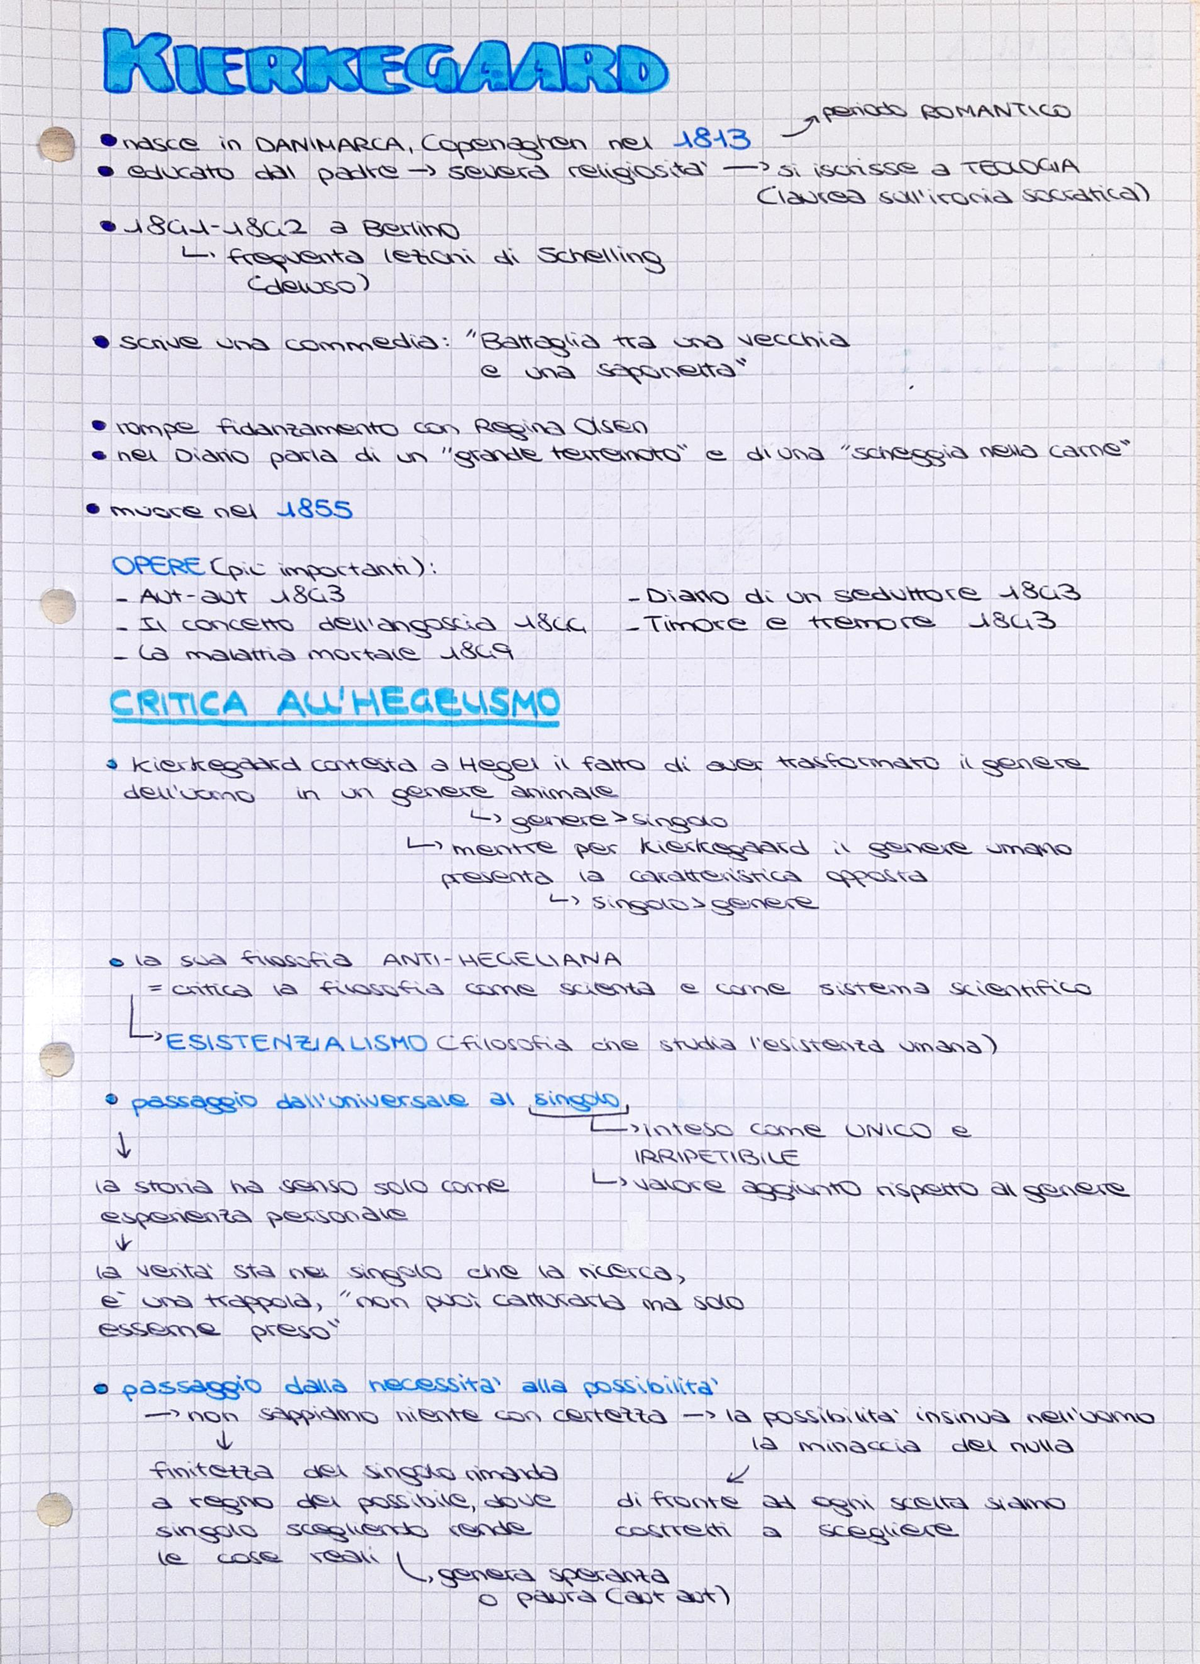 KIERKEGAARD
→ periodo ROMANTICO
• nasce in DANIMARCA, Copenaghen nel 1813
• educato dal padre → severa religiosita' → si iscrisse a TEOLOGIA
(laurea sull'ironia socratica)
• 1841-1842 a Berlino
↳ frequenta lezioni di Schelling
(deluso)
• scrive una commedia: "Battaglia tra una vecchia
e una saponetta"
• rompe fidanzamento con Regina Olsen
• nel Diario parla di un "grande terremoto" e di una "scheggia nella carne"
• muore nel 1855
OPERE (più importanti):
- Aut-aut 1843
- Diario di un seduttore 1843
- Il concetto dell'angoscia 1844
- Timore e tremore 1843
- La malattia mortale 1849
CRITICA ALL'HEGELISMO
• Kierkegaard contesta a Hegel il fatto di aver trasformato il genere
dell'uomo in un genere animale
↳ genere > singolo
↳ mentre per Kierkegaard il genere umano
presenta la caratteristica opposta
↳ singolo > genere
• la sua filosofia ANTI-HEGELIANA
= critica la filosofia come scienza e come sistema scientifico
↳ ESISTENZIALISMO (filosofia che studia l'esistenza umana)
• passaggio dall'universale al singolo
↳ inteso come UNICO e
IRRIPETIBILE
↳ valore aggiunto rispetto al genere
↓
la storia ha senso solo come
esperienza personale
↓
la verita' sta nel singolo che la ricerca,
e' una trappola, "non puoi catturarla ma solo
esserne preso"
• passaggio dalla necessita' alla possibilita'
→ non sappiamo niente con certezza → la possibilita' insinua nell'uomo
la minaccia del nulla
↓
finitezza del singolo rimanda
a regno del possibile, dove
singolo scegliendo rende
le cose reali
↙
di fronte ad ogni scelta siamo
costretti a scegliere
↳ genera speranza
o paura (aut aut)